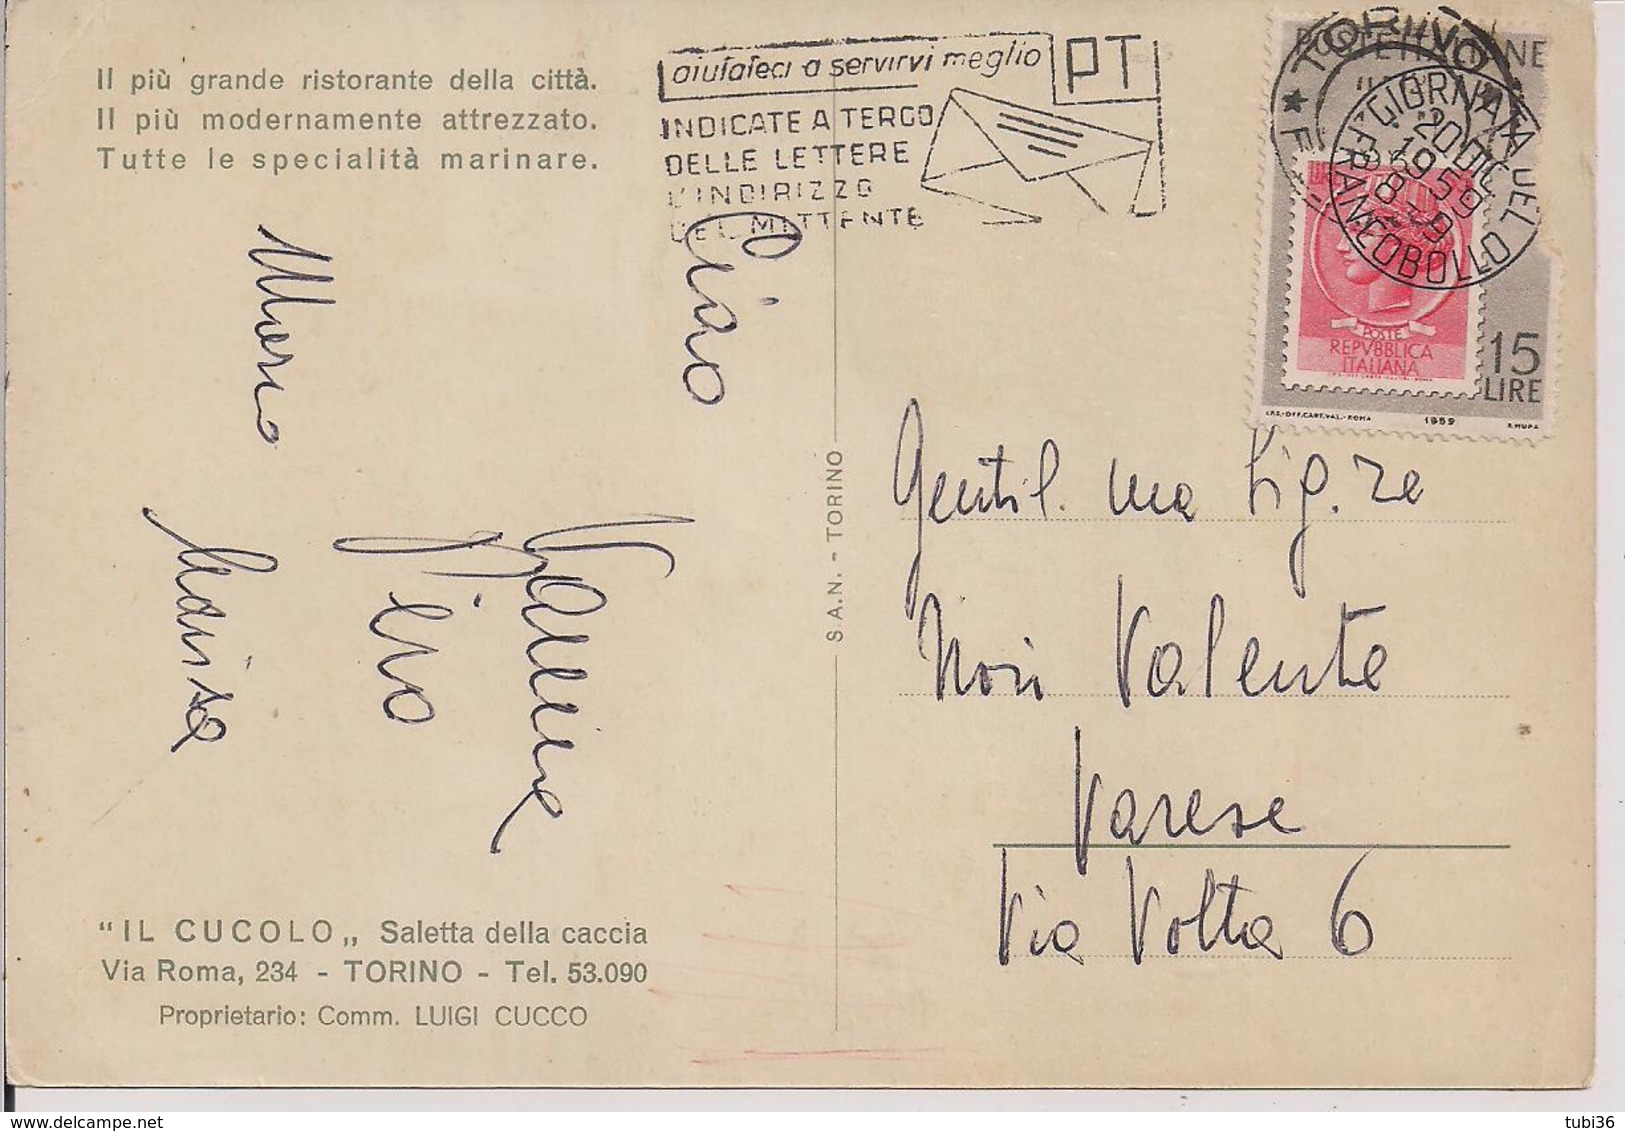 Il più grande ristorante della città.
Il più modernamente attrezzato.
Tutte le specialità marinare.
aiutateci a servirvi meglio
PT
INDICATE A TERGO
DELLE LETTERE
L'INDIRIZZO
DEL MITTENTE
TORINO
GIORNATA DEL FRANCOBOLLO
20 DIC
1959
POSTE
REPVBBLICA
ITALIANA
15
LIRE
I.P.S.-OFF.CART.VAL.-ROMA 1959 R.MURA
Ciao
Mario
Pino
Marisa
S.A.N. - TORINO
Gentil.ma Sig.ra
Nori Valente
Varese
Via Volta 6
"IL CUCOLO„ Saletta della caccia
Via Roma, 234 - TORINO - Tel. 53.090
Proprietario: Comm. LUIGI CUCCO
tubi36